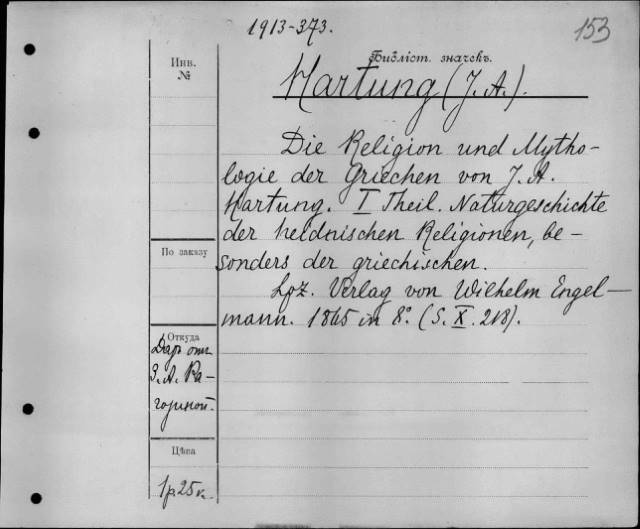 1913-373.
153
Инв.
№
Библіот. значекъ.
Hartung (J. A.).
Die Religion und Mytho-
logie der Griechen von J. A.
Hartung. I Theil. Naturgeschichte
der heidnischen Religionen, be-
sonders der griechischen.
Lpz. Verlag von Wilhelm Engel-
mann. 1865 in 8°. (S. X. 218).
По заказу
Откуда
Даръ отъ
З. А. Ра-
гозиной.
Цѣна
1р. 25 к.